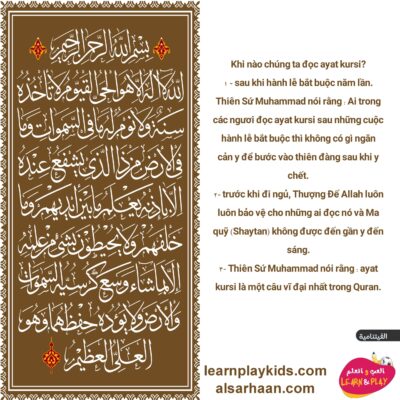 بِسْمِ اللَّهِ الرَّحْمَنِ الرَّحِيمِ
اللَّهُ لَا إِلَهَ إِلَّا هُوَ الْحَيُّ الْقَيُّومُ لَا تَأْخُذُهُ
سِنَةٌ وَلَا نَوْمٌ لَهُ مَا فِي السَّمَوَاتِ وَمَا
فِي الْأَرْضِ مَنْ ذَا الَّذِي يَشْفَعُ عِنْدَهُ
إِلَّا بِإِذْنِهِ يَعْلَمُ مَا بَيْنَ أَيْدِيهِمْ وَمَا
خَلْفَهُمْ وَلَا يُحِيطُونَ بِشَيْءٍ مِنْ عِلْمِهِ
إِلَّا بِمَا شَاءَ وَسِعَ كُرْسِيُّهُ السَّمَوَاتِ
وَالْأَرْضَ وَلَا يَئُودُهُ حِفْظُهُمَا وَهُوَ
الْعَلِيُّ الْعَظِيمُ
Khi nào chúng ta đọc ayat kursi?
١- sau khi hành lễ bắt buộc năm lần.
Thiên Sứ Muhammad nói rằng , Ai trong
các ngươi đọc ayat kursi sau những cuộc
hành lễ bắt buộc thì không có gì ngăn
cản y để bước vào thiên đàng sau khi y
chết.
٢- trước khi đi ngủ, Thượng Đế Allah luôn
luôn bảo vệ cho những ai đọc nó và Ma
quỹ (Shaytan) không được đến gần y đến
sáng.
٣- Thiên Sứ Muhammad nói rằng , ayat
kursi là một câu vĩ đại nhất trong Quran.
الفيتنامية
العب و اتعلم
LEARN & PLAY
learnplaykids.com
alsarhaan.com